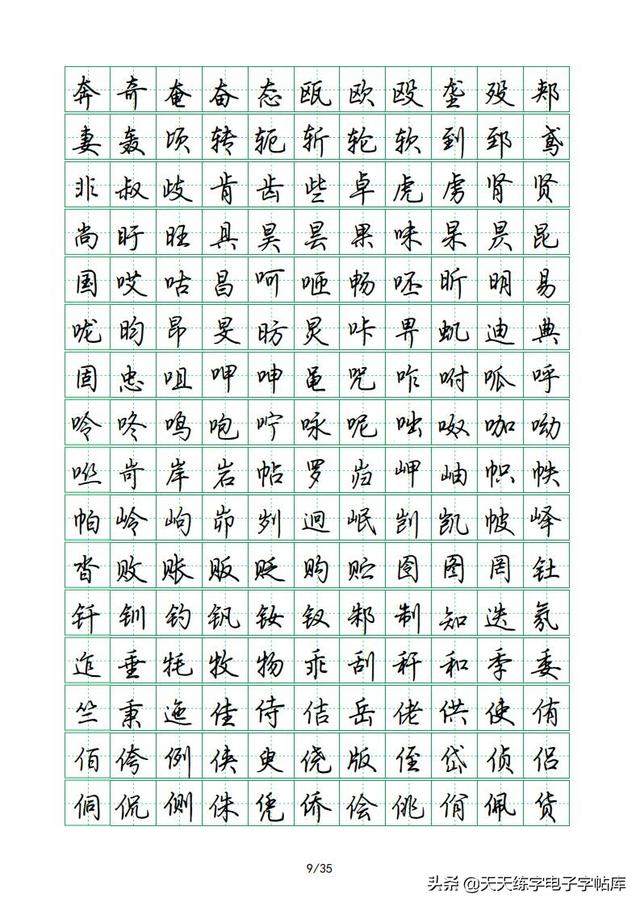 奔奇奄奋态瓯欧殴垄殁郏
妻轰顷转轭斩轮软到郅鸢
非叔歧肯齿些卓虎虏肾贤
尚盱旺具昊昙果味杲昃昆
国哎咕昌呵咂畅呸昕明易
咙昀昂旻昉炅咔畀虮迪典
固忠咀呷呻黾咒咋咐呱呼
呤咚鸣咆咛咏呢咄呶咖呦
咝岢岸岩帖罗岿岬岫帜帙
帕岭岣峁刿迥岷剀凯帔峄
沓败账贩贬购贮囹图罔钍
钎钏钓钒钕钗邾制知迭氛
迮垂牦牧物乖刮秆和季委
竺秉迤佳侍佶岳佬供使侑
佰侉例侠臾侥版侄岱侦侣
侗侃侧侏凭侨侩佻佾佩货
9/35
头条 @天天练字电子字帖库